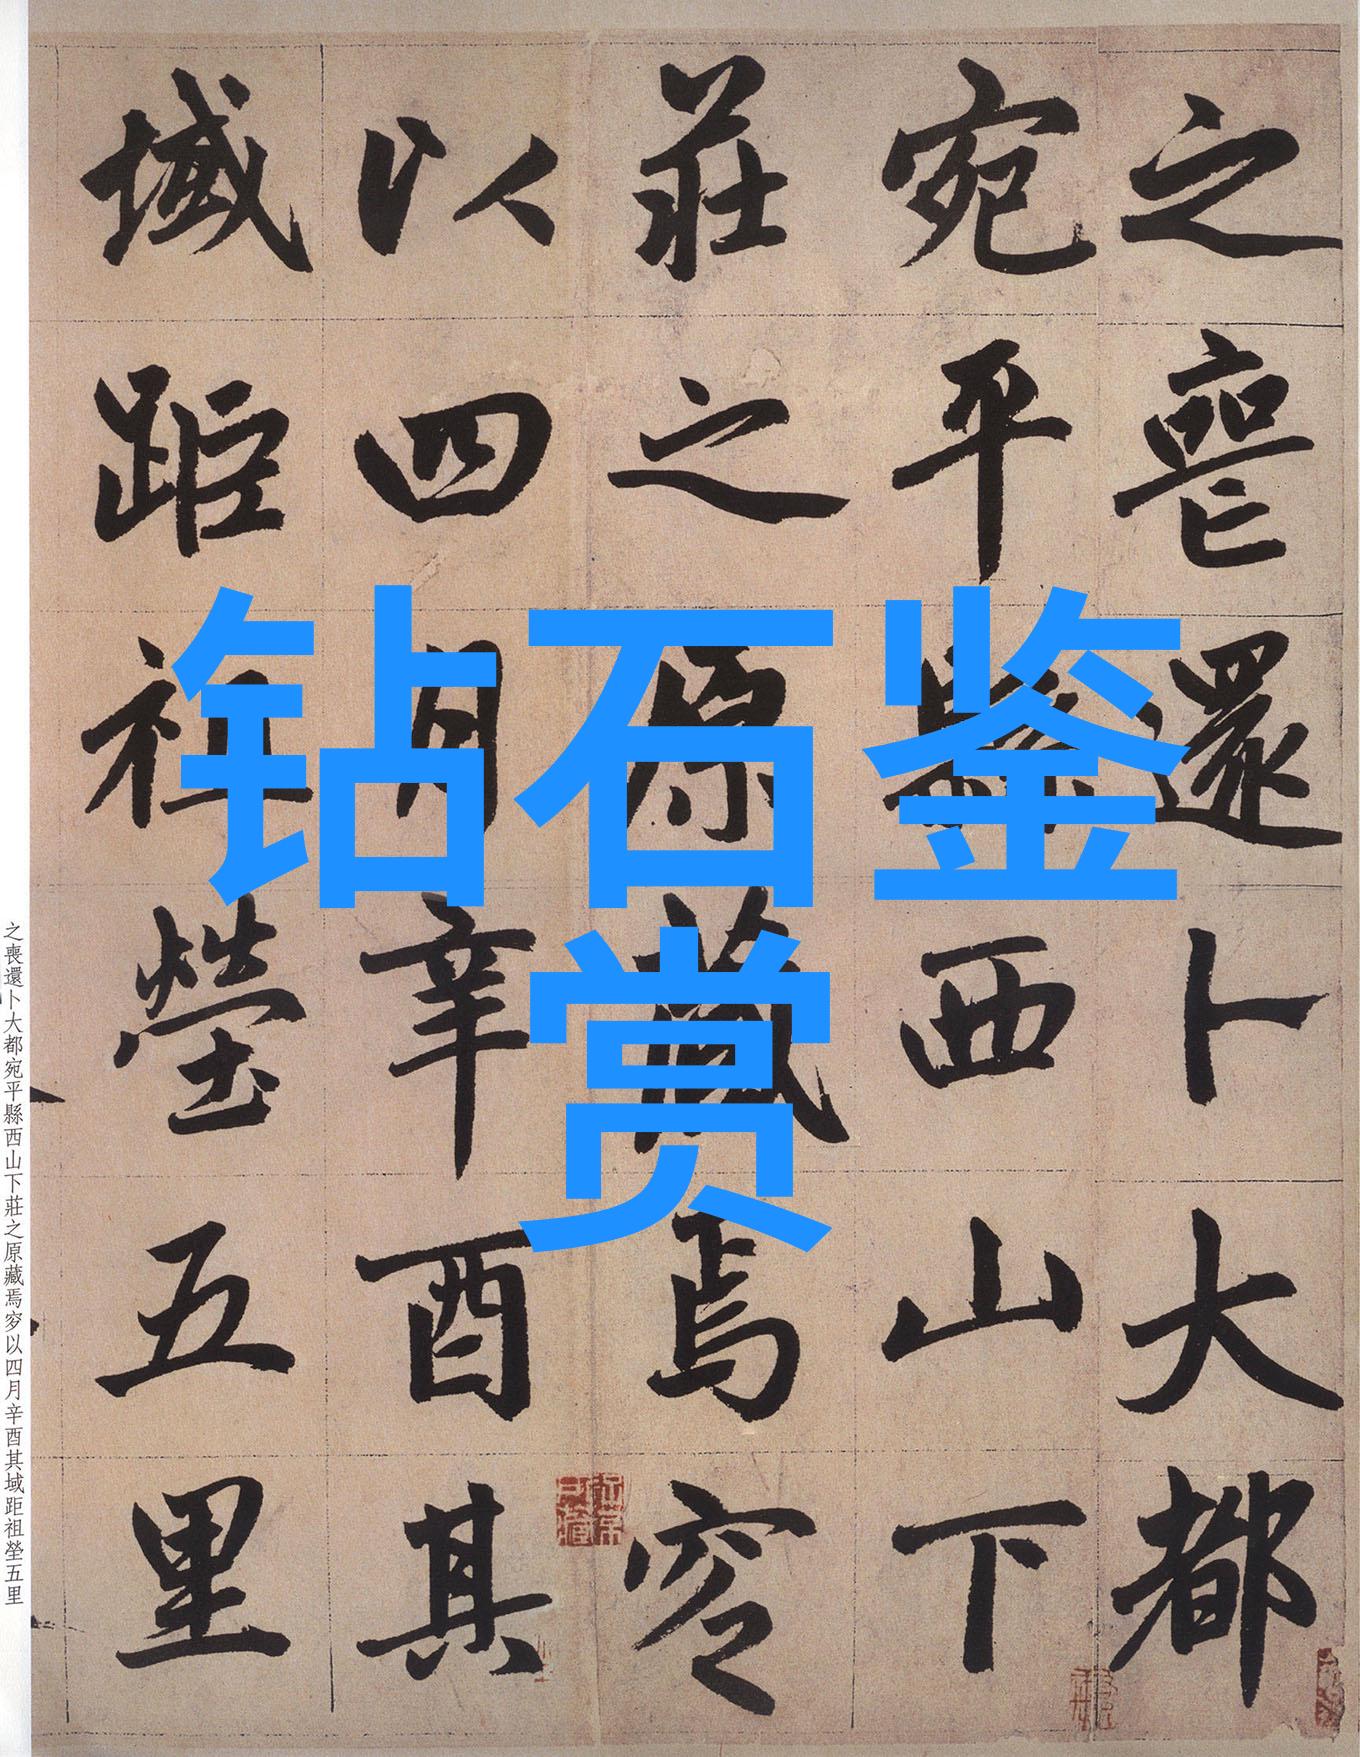 钻石鉴
赏
之喪還卜大都
宛平縣西山下
莊之原藏焉窆
以四月辛酉其
域距祖塋五里
之喪還卜大都宛平縣西山下莊之原藏焉窆以四月辛酉其域距祖塋五里